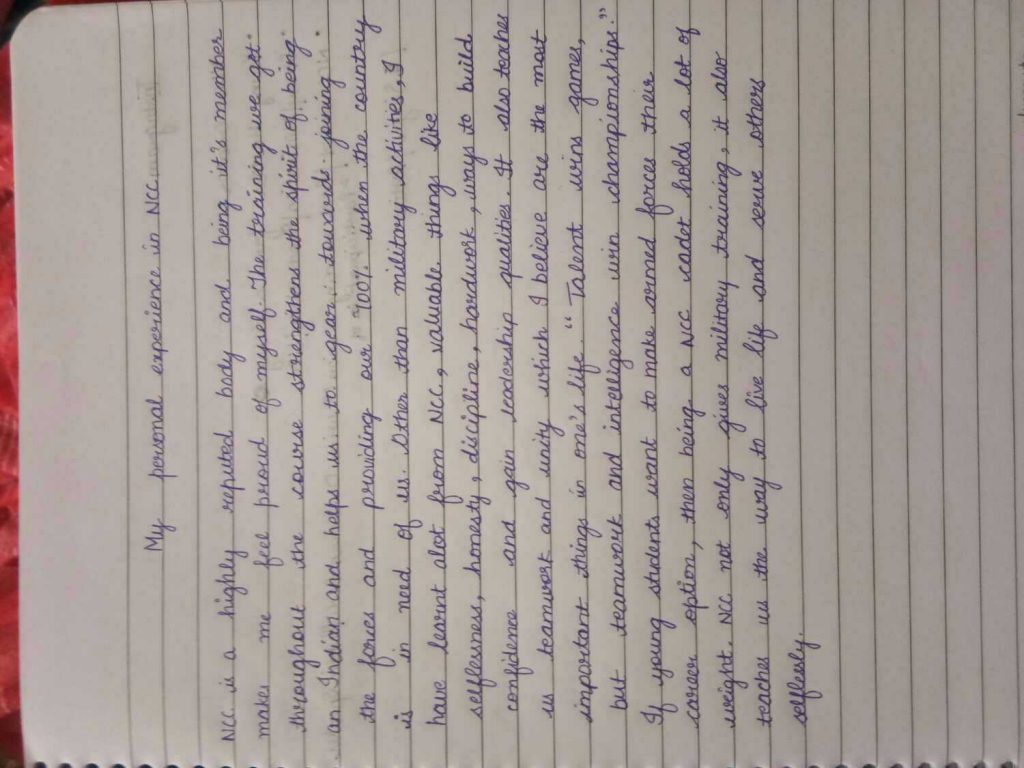 My personal experience in NCC.
NCC is a highly reputed body and being it's member
makes me feel proud of myself. The training we get
throughout the course strengthens the spirit of being
an Indian and helps us to gear towards joining
the forces and providing our 100% when the country
is in need of us. Other than military activities, I
have learnt alot from NCC, valuable things like
selflessness, honesty, discipline, hardwork, ways to build
confidence and gain leadership qualites. It also teaches
us teamwork and unity which I believe are the most
important things in one's life. "Talent wins games,
but teamwork and intelligence win championships."
If young students want to make armed forces their
career option, then being a NCC cadet holds a lot of
weight. NCC not only gives military training, it also
teaches us the way to live life and serve others
selflessly.